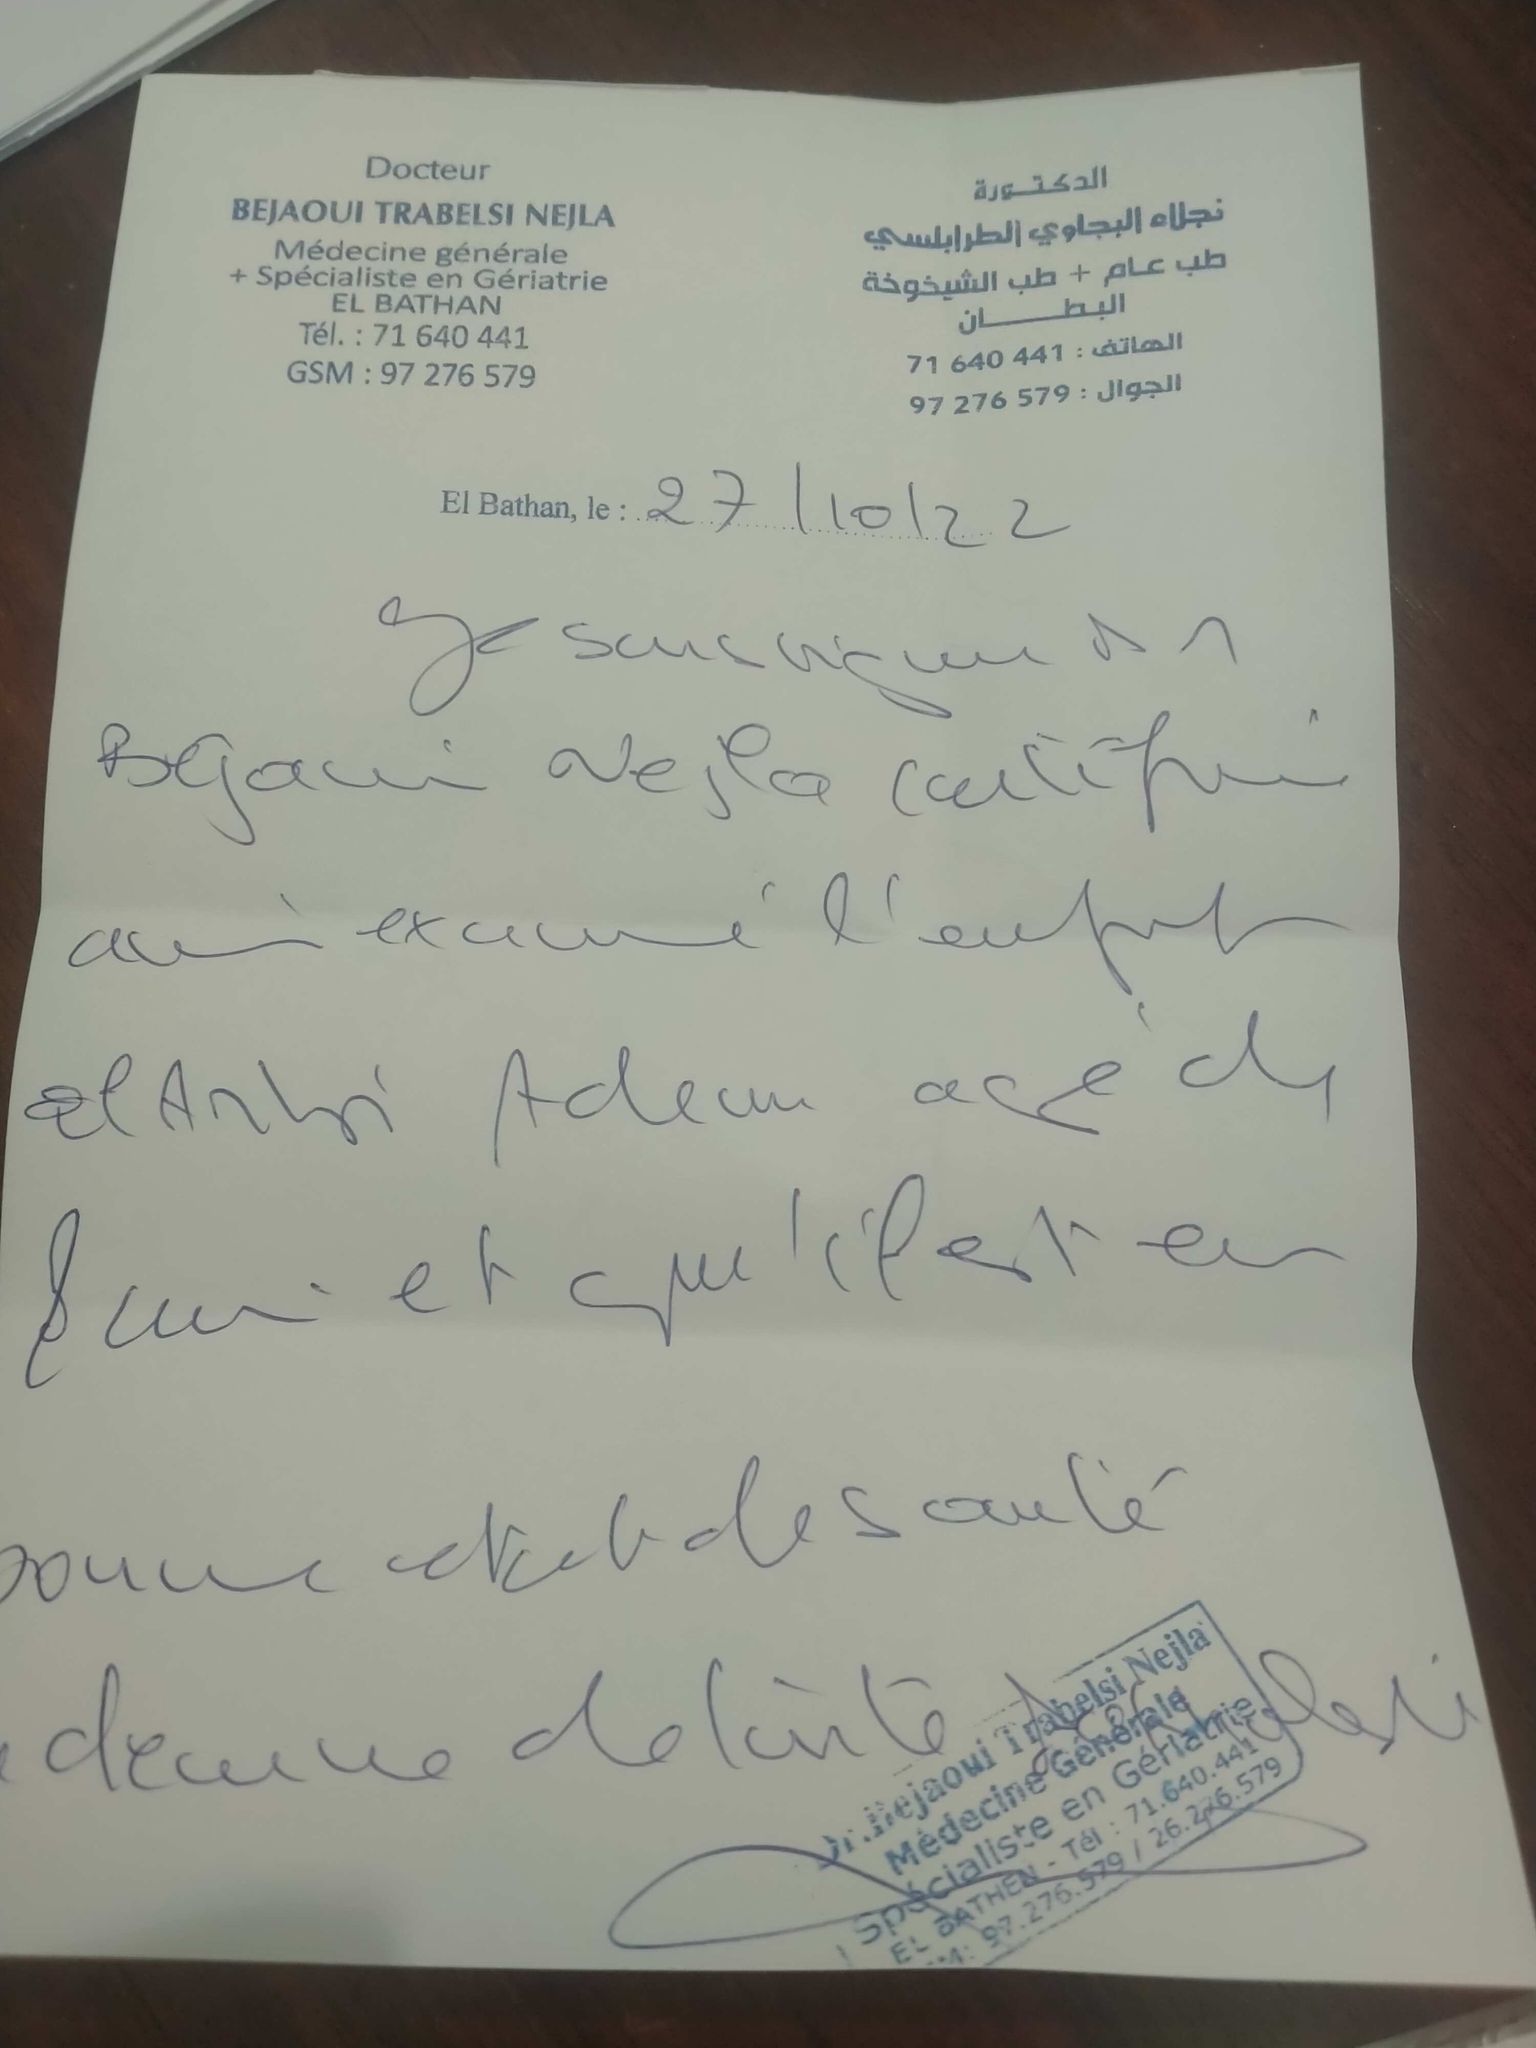 Docteur
BEJAOUI TRABELSI NEJLA
Médecine générale
+ Spécialiste en Gériatrie
EL BATHAN
Tél. : 71 640 441
GSM : 97 276 579
الدكتورة
نجلاء البجاوي الطرابلسي
طب عام + طب الشيخوخة
البطان
الهاتف : 71 640 441
الجوال : 97 276 579
El Bathan, le : 27/10/22
Je soussigné Dr
Béjaoui Nejla certifie
avoir examiné l'enfant
Adem agé de
et qu'il est en
bonne état de santé
Dr.Bejaoui Trabelsi Nejla
Médecine Générale
Spécialiste en Gériatrie
EL BATHEN - Tél : 71.640.441
97.276.579 / 26.276.579